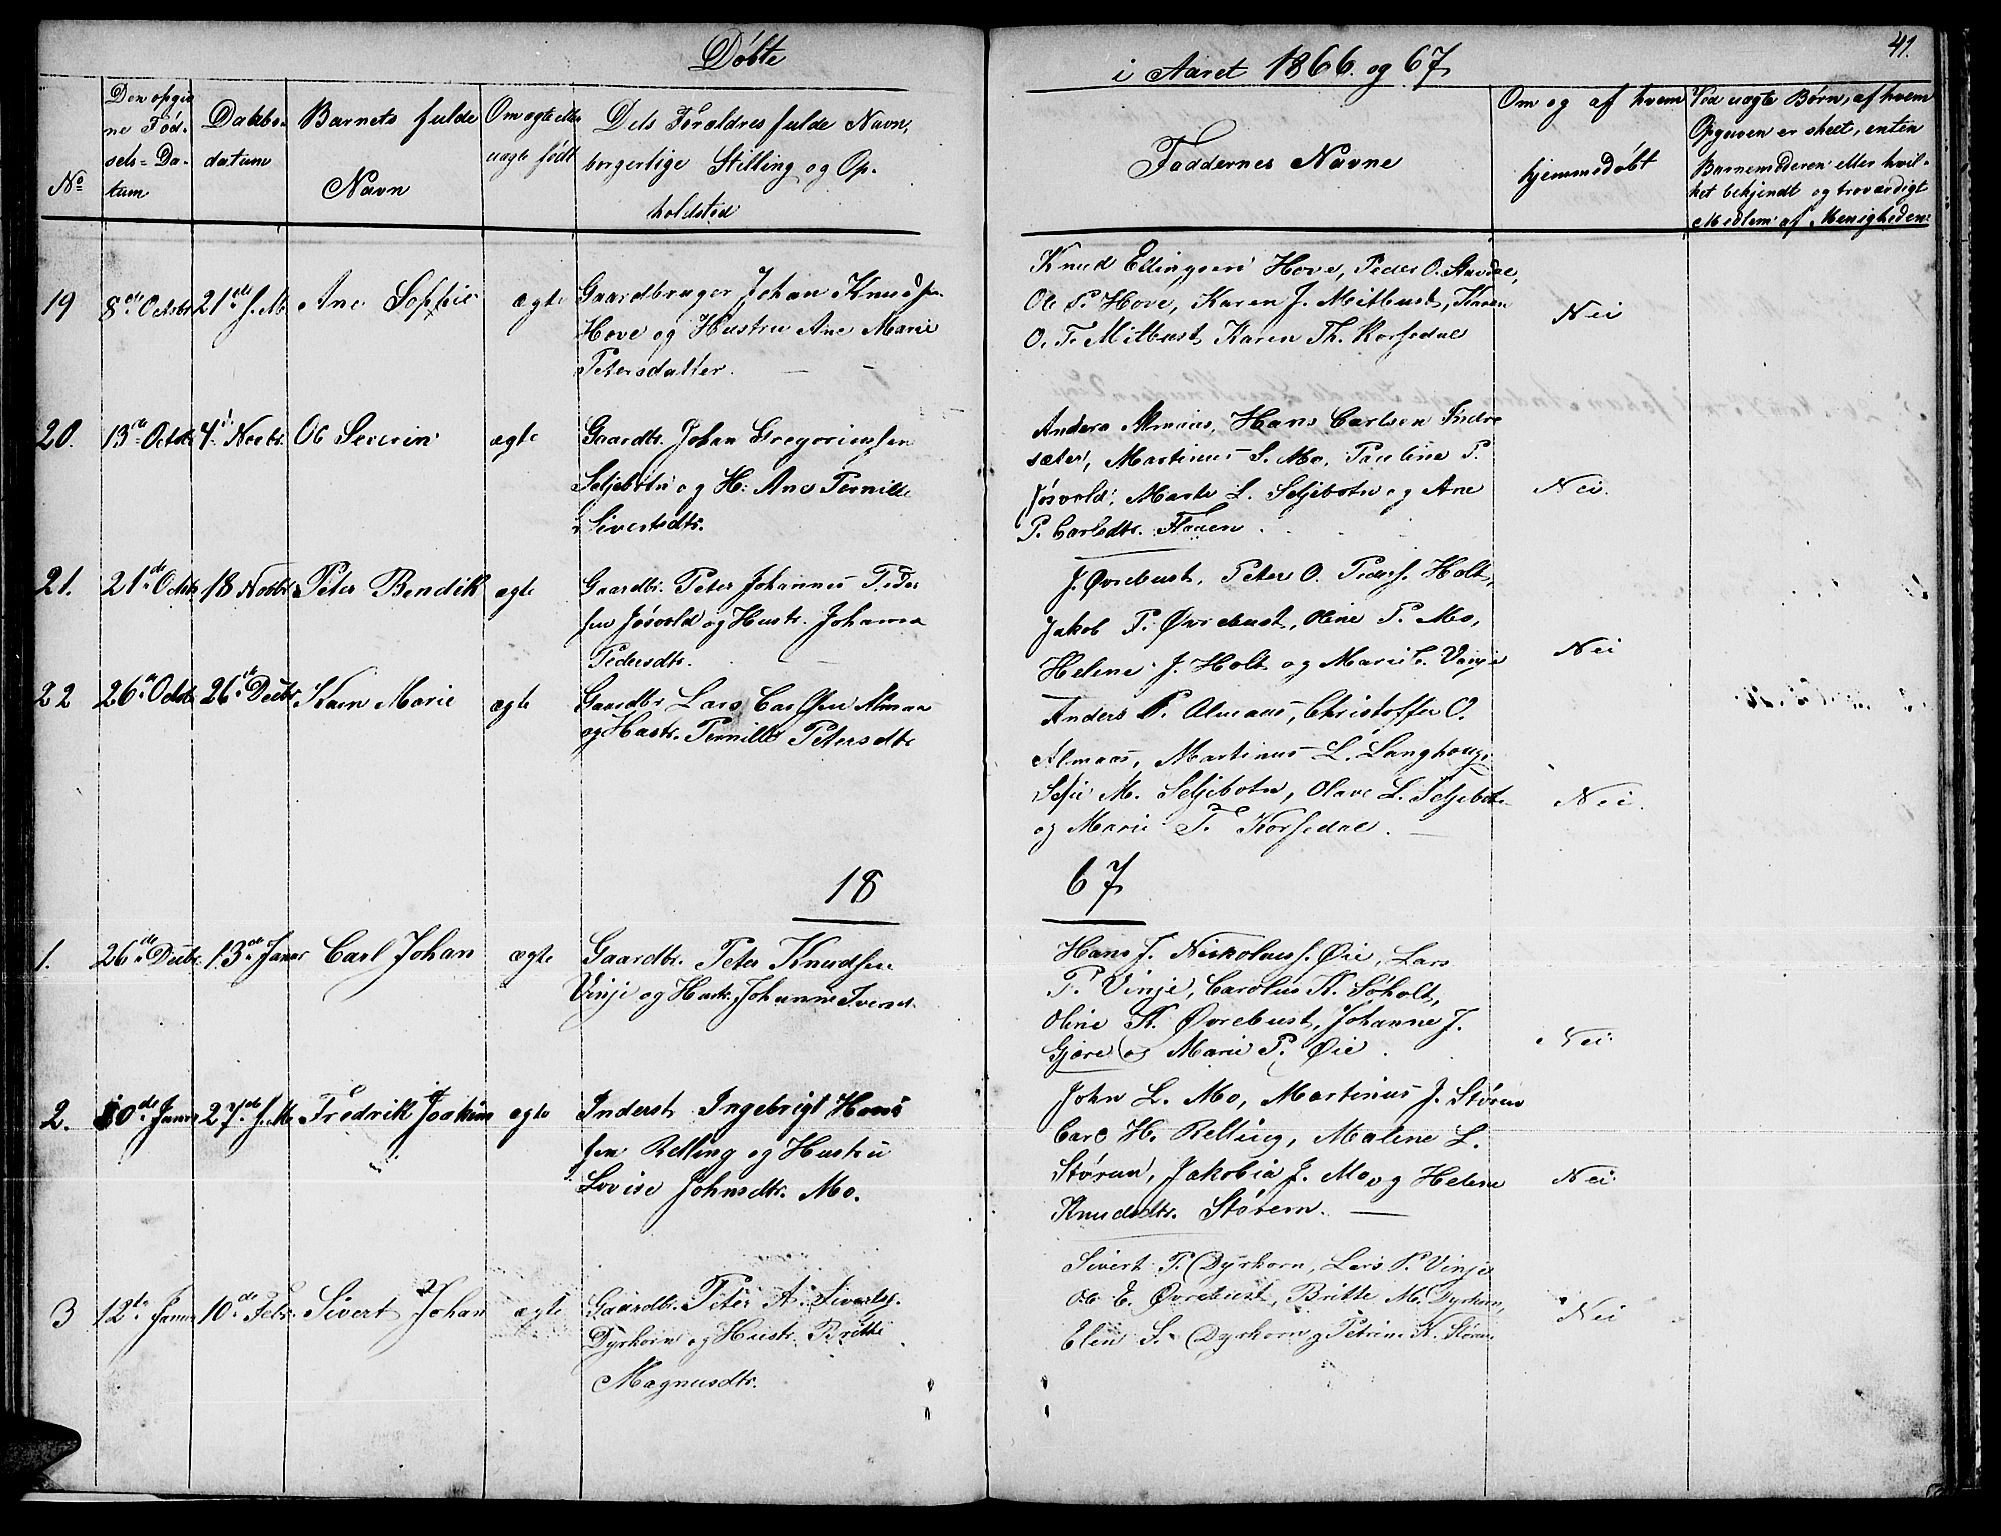 Döbte
i Aaret 1866. og 67
41.
No
Den opgiv
ne Föd-
sels-Da-
tum
Daabs-
datum
Barnets fulde
Navn
Om ægte eller
uægte födt
Dets Foraldres fulde Navn,
borgerlige Stilling og Op-
holdsted
Faddernes Navne
Om og af hvem
hjemmedöbt
Ved uægte Börn, af hvem
Opgaven er skeet, enten
Barnemoderen eller hvil-
ket bekjendt og troværdigt
Medlem af Menigheden
19 8de Octbr 21de s.M. Ane Sophie ægte
Gaardbruger Johan Knudsen
Hove og Hustru Ane Marie
Petersdatter.
Knud Ellingsen Hove, Peder O.
Ole P. Hove, Karen J. Mitbust, Karen
O. T. Mitbust, Karen Th. Korsedal
Nei
20. 13de Octbr 4de Novbr. Ole Severin ægte
Gaardbr. Johan Gregoriussen
Seljebotn og H. Ane Pernille
Sivertsdtr.
Anders Almaas, Hans Carlsen Indre
sæter, Martinus S. Mo, Pauline P.
Jösvold, Marte L. Seljebotn og Ane
P. Carlsdtr. Flauen
Nei.
21. 21de Octbr 18 Novbr. Peter Bendik ægte
Gaardbr. Peter Johannes Peder
sen Jösvold og Hustr. Johanna
Pedersdtr.
J. Øvrebust, Peter O. Peders. Holt,
Jakob P. Øvrebust, Oline P. Mo,
Helene J. Holt og Marie C. Vinje
Nei
22 26de Octbr 26de Decbr Karn Marie ægte
Gaardbr. Lars Carlsen Almaas
og Hustr. Pernille Petersdtr
Anders P. Almaas, Christoffer O.
Almaas, Martinus L. Langhoug,
Sofie M. Seljebotn, Olave L. Seljebotn
og Marie T. Korsedal.
Nei.
18 67
1. 26de Decbr. 13de Januar Carl Johan ægte
Gaardbr. Peter Knudsen
Vinje og Hustr. Johanne Iversd.
Hans J. Nikolaus. Øie, Lars
P. Vinje, Carolus K. Söholt,
Oline K. Øvrebust, Johanne J.
Gjære og Marie P. Øie.
Nei.
2. 10de Januar 27de s.M. Fredrik Joakim ægte
Inderst Ingebrigt Hans
sen Relling og Hustru
Lovise Johnsdtr. Mo.
John L. Mo, Martinus J. Stören
Carl H. Relling, Malene L.
Stören, Jakobia J. Mo og Helene
Knudsdtr. Stören.
Nei
3 12te Januar 10de Febr. Sivert Johan ægte
Gaardbr. Peter A. Sivertsg.
Dyrkorn og Hustr. Britte
Magnusdtr.
Sivert P. Dyrkorn, Lars P. Vinje
Ole E. Øvrebust, Britte M. Dyrkorn,
Elen S. Dyrkorn og Petrine K. Stören
Nei